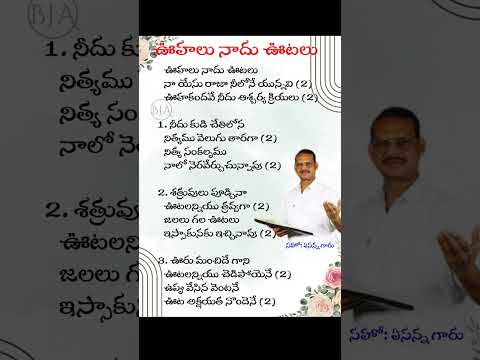 BJA
ఊహలు నాదు ఊటలు
ఊహలు నాదు ఊటలు
నా యేసు రాజా నీలోనే యున్నవి (2)
ఊహకందవే నీదు ఆశ్చర్య క్రియలు (2)
1. నీదు కుడి చేతిలోన
నిత్యము వెలుగు తారగా (2)
నిత్య సంకల్పము
నాలో నెరవేర్చుచున్నావు (2)
2. శత్రువులు పూడ్చినా
ఊటలన్నియు త్రవ్వగా (2)
జలలు గల ఊటలు
ఇస్సాకునకు ఇచ్చినావు (2)
సహో: ఏసన్న గారు
3. ఊరు మంచిదే గాని
ఊటలన్నియు చెడిపోయెనే (2)
ఉప్పు వేసిన వెంటనే
ఊట అక్షయత నొందెనే (2)